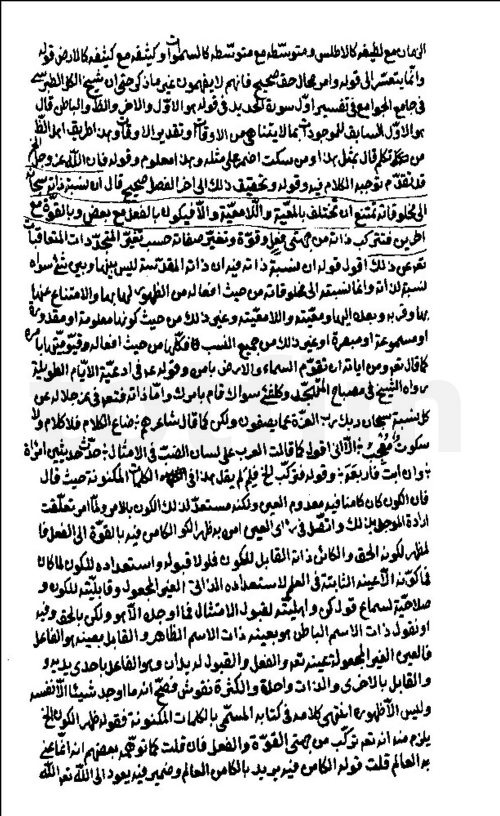 الزمان مع لطيفه كالاطلس ومتوسّطه مع متوسّطه كالسموات وكثيفه مع كثيفه كالارض قوله
وانّما يتعسّر الى قوله وامر محال حقّ صحيح فانهم لا يفهمون غير ما ذكر حتى ان شيخ الكل الطبرسي
في جامع الجوامع في تفسير اوّل سورة الحديد في قوله هو الاوّل والاخر والظاهر والباطن قال
هو الاوّل السابق للموجودات بما لا يتناهى من الاوقات او تقدير الاوقات وهذا طريق اهل الظاهر
من تكلم قال بمثل هذا ومن سكت اضمر على مثله وهذا معلوم وقوله فان الله عز وجل الخ
قد تقدّم توجيه الكلام فيه وقوله وتحقيق ذلك الى اخر الفصل صحيح قال ان نسبة ذاته سبحانه
الى مخلوقاته تمتنع ان تختلف بالمعيّة واللّامعيّة والّا فيكون بالفعل مع بعض وبالقوة مع
اخرين فتتركب ذاته من جهتي فعل وقوّة وتتغيّر صفاته حسب تغيّر المتجدّدات المتعاقبات
تعالى عن ذلك اقول قوله ان نسبة ذاته فيه ان ذاته المقدّسة ليس بينها وبين شئ سواه
نسبة لذاته وانما نسبته الى مخلوقاته من حيث افعاله من الظهور لها بها والامتناع عنها
بها وقربه وبعده اليها ومعيّته واللّامعيّته وغير ذلك من حيث كونها معلومة او مقدورة
او مسموعة او مبصرة او غير ذلك من جميع النسب فانّ كلّها من حيث افعاله وقيوميّته بامره
كما قال تعالى ومن اياته ان تقوم السماء والارض بامره وقوله ع في ادعيّة الايّام الطويلة
رواه الشيخ في مصباح المتهجّد وكلّ شئ سواك قام بامرك وامّا ذاته فتعالى في عزّ جلاله عن
كل نسبة سبحان ربك رب العزّة عما يصفون ولكن كما قال شاعرهم ضاع الكلام فلا كلام ولا
سكوت مُعْجِبُ الّا انّي اقول كما قالت العرب على لسان الضبّ في الامثال حدّث حديثين امرأة
وان ابت فاربعة وقوله فتركّب الخ فلِمَ لم يقل بهذا في الكلمات المكنونة حيث قال
فان الكون كان كامنا فيه معدوم العين ولكنه مستعدّ لذلك الكون بالامر ولمّا امر تعلّقت
ارادة الموجد بذلك واتّصل في رأي العين امره به ظهر الكون الكامن فيه بالقوة الى الفعل فا
لمظهر لكونه الحق والكائن ذاته القابل للكون فلولا قبوله واستعداده للكون لما كان
فما كوّنه الّا عينه الثابتة في العلم لاستعداده الذاتي الغير المجعول وقابليّته للكون و
صلاحيّة لسماع قول كن واهليّته لقبول الامتثال فما اوجده الّا هو ولكن بالحق وفيه
او نقول ذات الاسم الباطن هو بعينه ذات الاسم الظاهر والقابل بعينه هو الفاعل
فالعين الغير المجعولة عينه تعالى والفعل والقبول له يدان وهو الفاعل باحدى يديه و
والقابل بالاخرى والذات واحدة والكثرة نقوش فصحّ انه ما اوجد شيئا الّا نفسه
وليس الّا ظهوره انتهى كلامه في كتابه المسمّى بالكلمات المكنونة فقوله ظهر الكون الخ
يلزم منه انه تعالى تركّب من جهتي القوّة والفعل فان قلت كما توهّمه بعضهم انه انّما عنى
به العالم قلت قوله الكامن فيه يريد بالكامن العالم وضمير فيه يعود الى اللّه تعالى اللّه